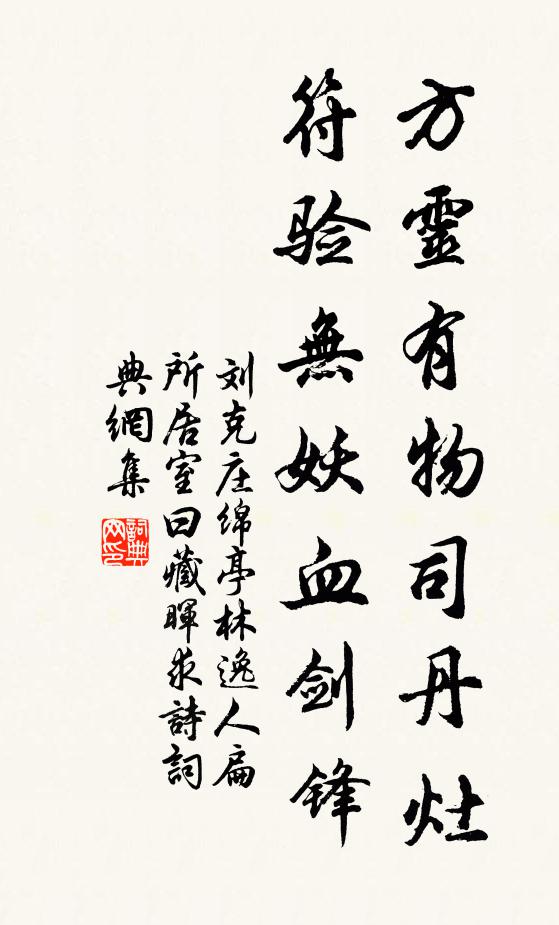 方靈有物司丹灶
符验無妖血剑锋
刘克庄绵亭林逸人扁
所居室曰藏暉求詩詞
典網集
詞典
网印